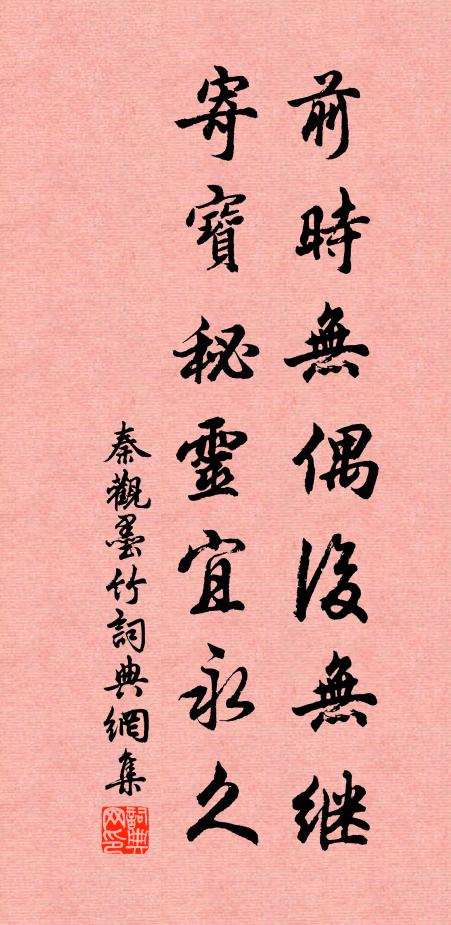 前時無偶後無继
寄寶秘靈宜永久
秦觀墨竹詞典網集
詞典网印